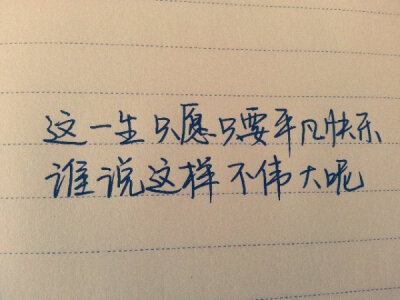 这一生只愿只要平凡快乐
谁说这样不伟大呢